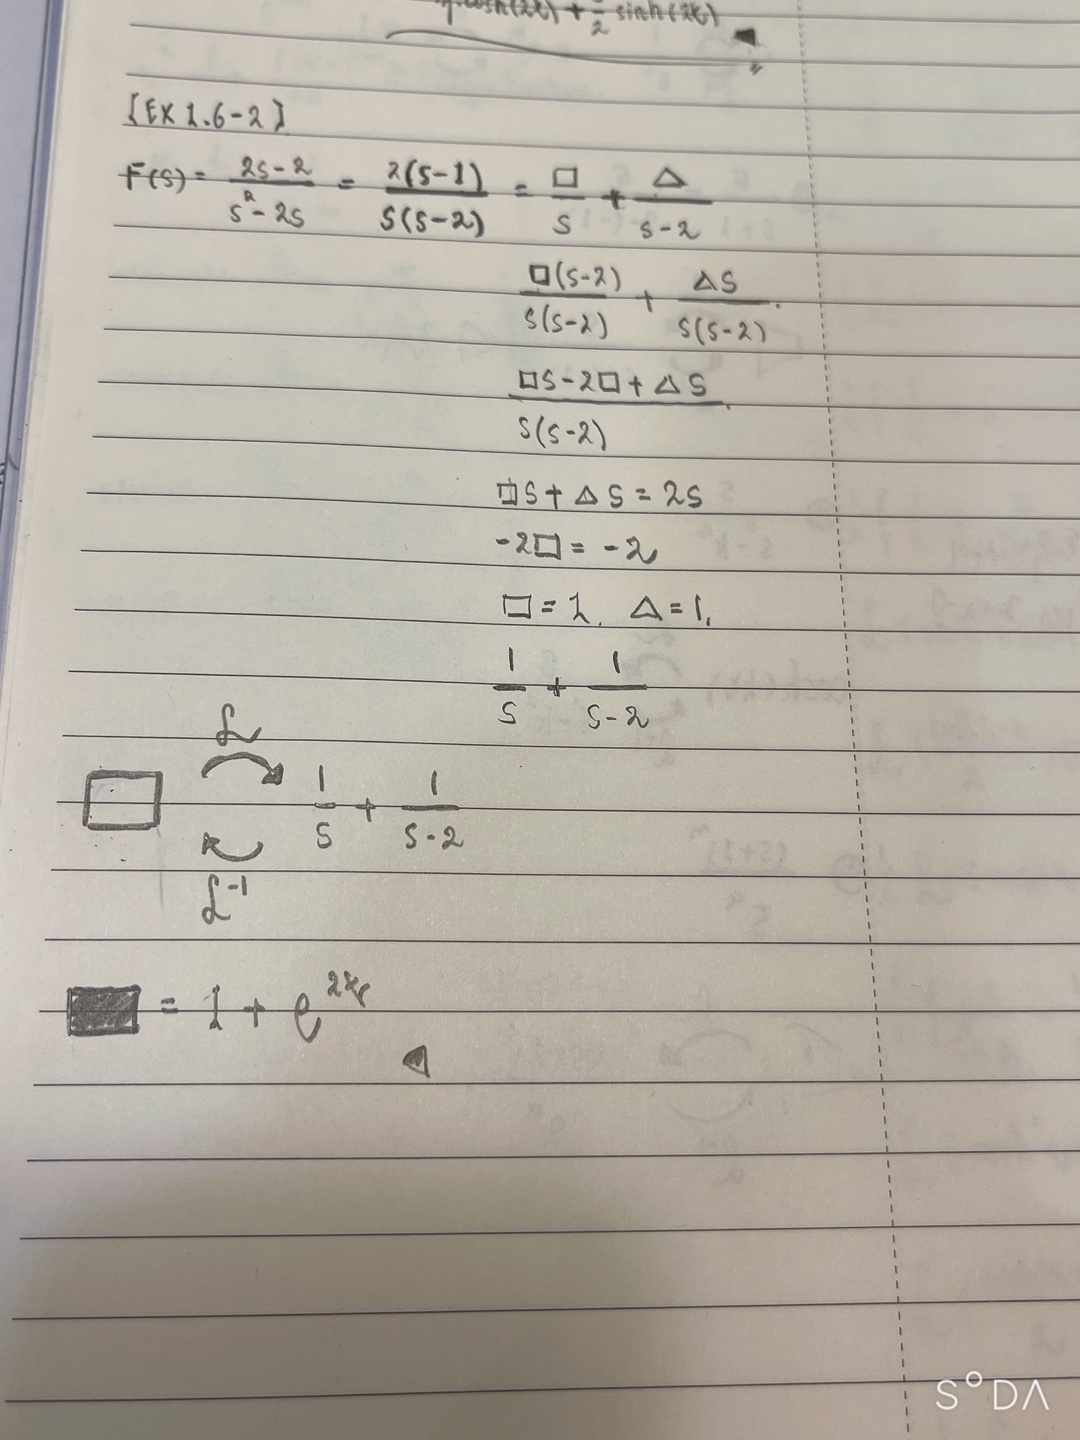 cosh(2t) + 7/2 sinh(2t)
[EX 1.6-2]
F(s) = 2s-2 / s²-2s = 2(s-1) / s(s-2) = □/s + △/s-2
□(s-2) / s(s-2) + △s / s(s-2)
□s-2□+△s / s(s-2)
□s+△s=2s
-2□=-2
□=1, △=1,
1/s + 1/s-2
ℒ
□ 1/s + 1/s-2
ℒ⁻¹
■ = 1 + e^2t
S°DΛ